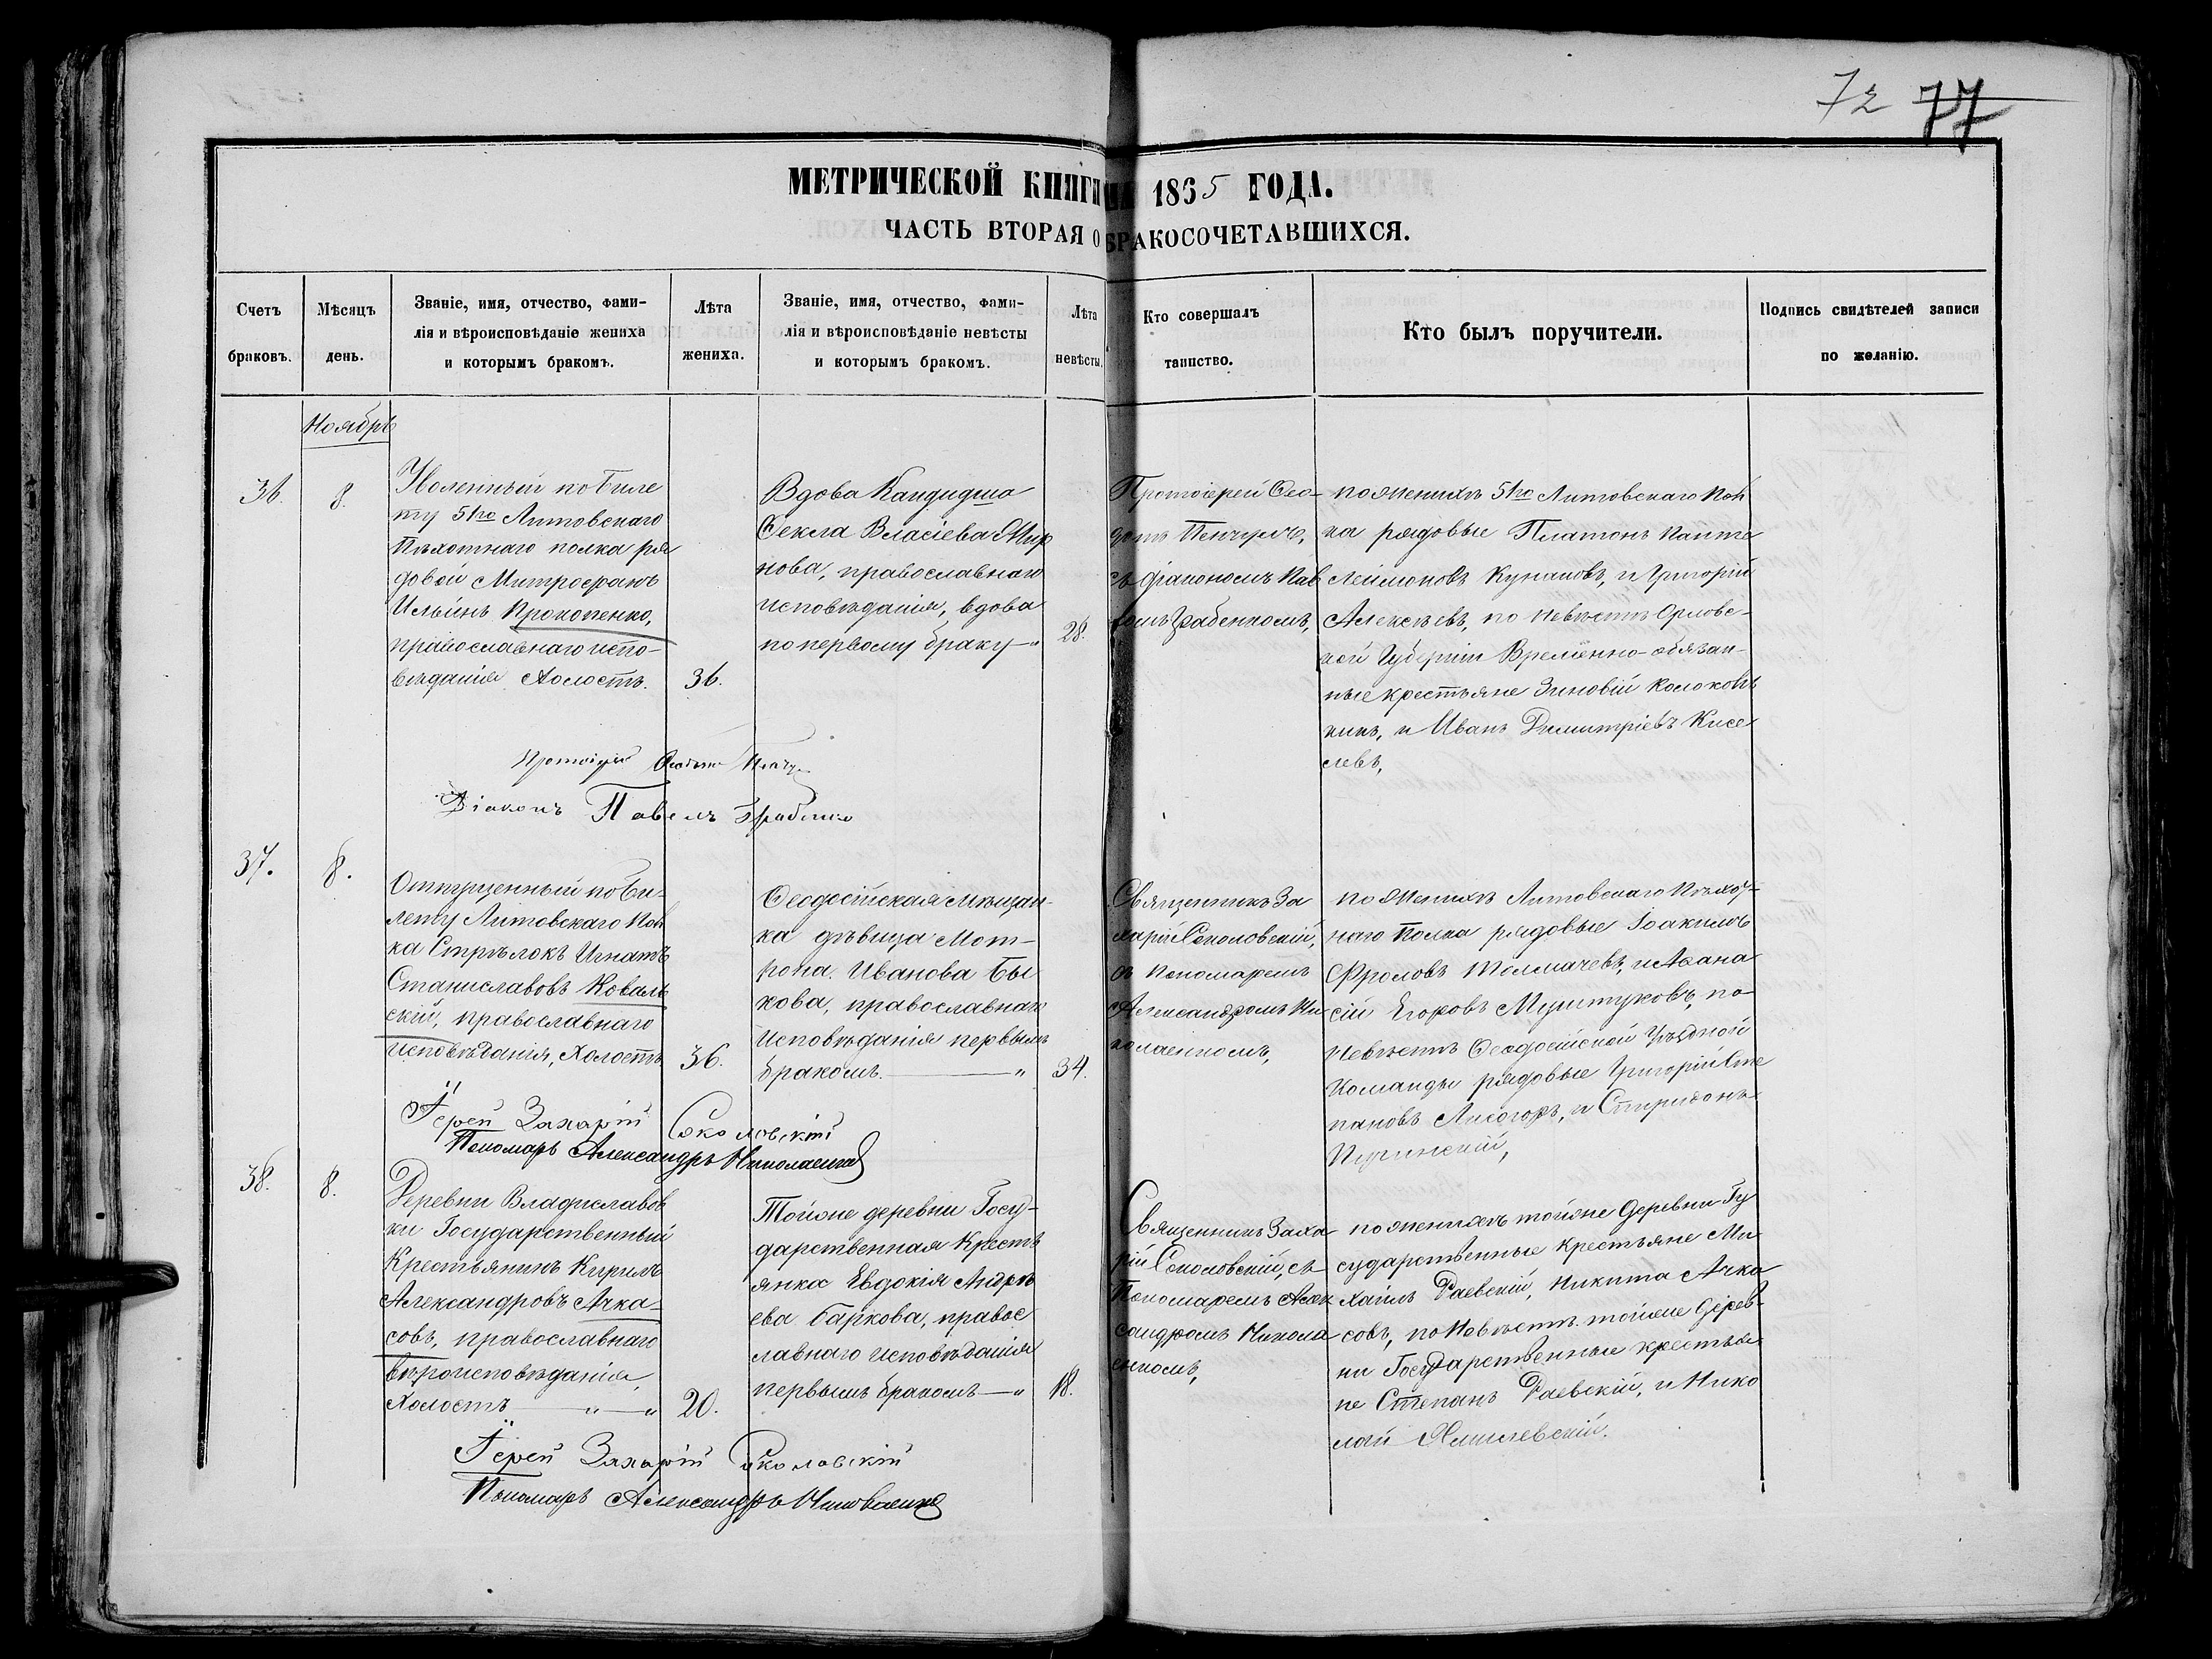 72 77
МЕТРИЧЕСКОЙ КНИГИ НА 1865 ГОДА.
ЧАСТЬ ВТОРАЯ О БРАКОСОЧЕТАВШИХСЯ.
Счетъ
браковъ.
Мѣсяцъ
день.
Званіе, имя, отчество, фами-
лія и вѣроисповѣданіе жениха
и которымъ бракомъ.
Лѣта
жениха.
Званіе, имя, отчество, фами-
лія и вѣроисповѣданіе невѣсты
и которымъ бракомъ.
Лѣта
невѣсты.
Кто совершалъ
таинство.
Кто былъ поручители.
Подпись свидѣтелей записи
по желанію.
Ноябрь
36.
8.
Уволенный по биле
ту 51го Литовскаго
Пѣхотнаго полка ря
довой Митрофанъ
Ильинъ Прокопенко,
православнаго испо-
вѣданія Холостъ.
36.
Вдова
Ѳекла Власіева
нова, православнаго
исповѣданія, вдова
по первому браку —"
28.
Протоіерей Ѳео-
дотъ
съ діакономъ Пав
ломъ Грабенкомъ,
по женихѣ 51го Литовскаго Пол
ка рядовые Платонъ Панте
леймоновъ Кунаковъ, и Григорій
Алексѣевъ, по невѣстѣ Орловс-
кой Губерніи Временно-обязан-
ные крестьяне Зиновій
и Иванъ Димитріевъ Кисе
левъ,
Протоіерей Ѳеодотъ
Діаконъ Павелъ Грабенко
37.
8.
Отпущенный по би-
лету Литовскаго Пол
ка Стрѣлокъ Игнатъ
Станиславовъ Коваль
скій, православнаго
исповѣданія, Холостъ
36.
Ѳеодосійская мѣщан-
ка дѣвица Мот-
рона Иванова Бы
кова, православнаго
исповѣданія первымъ
бракомъ. — "
34.
Священникъ За
харій Соколовскій,
съ пономаремъ
Александромъ Ни
колаенкомъ,
по женихѣ Литовскаго Пѣхот-
наго Полка рядовые Іоакимъ
Фроловъ Толмачевъ, и Аѳана
сій Егоровъ Муштуковъ, по
невѣстѣ Ѳеодосійской Уѣздной
Команды рядовые Григорій Сте
пановъ Лисогоръ, и Спиридонъ
Іерей Захарій Соколовскій
Пономарь Александръ Николаенко
38.
8.
Деревни Владиславов
ки Государственный
Крестьянинъ Кирилъ
Александровъ Ачка-
совъ, православнаго
вѣроисповѣданія,
Холостъ — " — "
20.
Тойже деревни Госу-
дарственная Кресть
янка Евдокія Андре
ева Баркова, правос
лавнаго исповѣданія
первымъ бракомъ — "
18.
Священникъ Заха
рій Соколовскій, съ
Пономаремъ Алек
сандромъ Никола
енкомъ,
по женихѣ тойже деревни Гу
сударственные крестьяне Ми
хаилъ Раевскій, Никита Ачка
совъ, по Невѣстѣ тойже дерев-
ни Государственные крестья
не Степанъ Раевскій, и Нико
лай
Іерей Захарій Соколовскій
Пономарь Александръ Николаенко